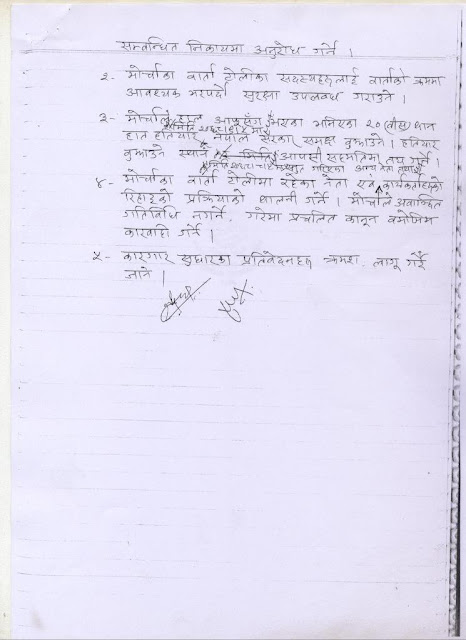 सम्बन्धित निकायमा अनुरोध गर्ने ।
२- मोर्चाका वार्ता टोलीका सदस्यहरुलाई वार्ताको क्रममा
आवश्यक भरपर्दो सुरक्षा उपलब्ध गराउने ।
३- मोर्चाले हाल आफूसँग भएका भनिएका २० (बीस) थान
हात हतियार नेपाल सरकार समक्ष बुझाउने । हतियार
बुझाउने स्थान र मिति आपसी सहमतिमा तय गर्ने ।
४- मोर्चाका वार्ता टोलीमा रहेका नेता एवं कार्यकर्ताहरुको
रिहाईको प्रक्रियाको थालनी गर्ने । मोर्चाले अवाञ्छित
गतिविधि नगर्ने, गरेमा प्रचलित कानून बमोजिम
कारवाही गर्ने ।
५- कारागार सुधारका प्रतिवेदनहरु क्रमशः लागू गर्दै
जाने ।